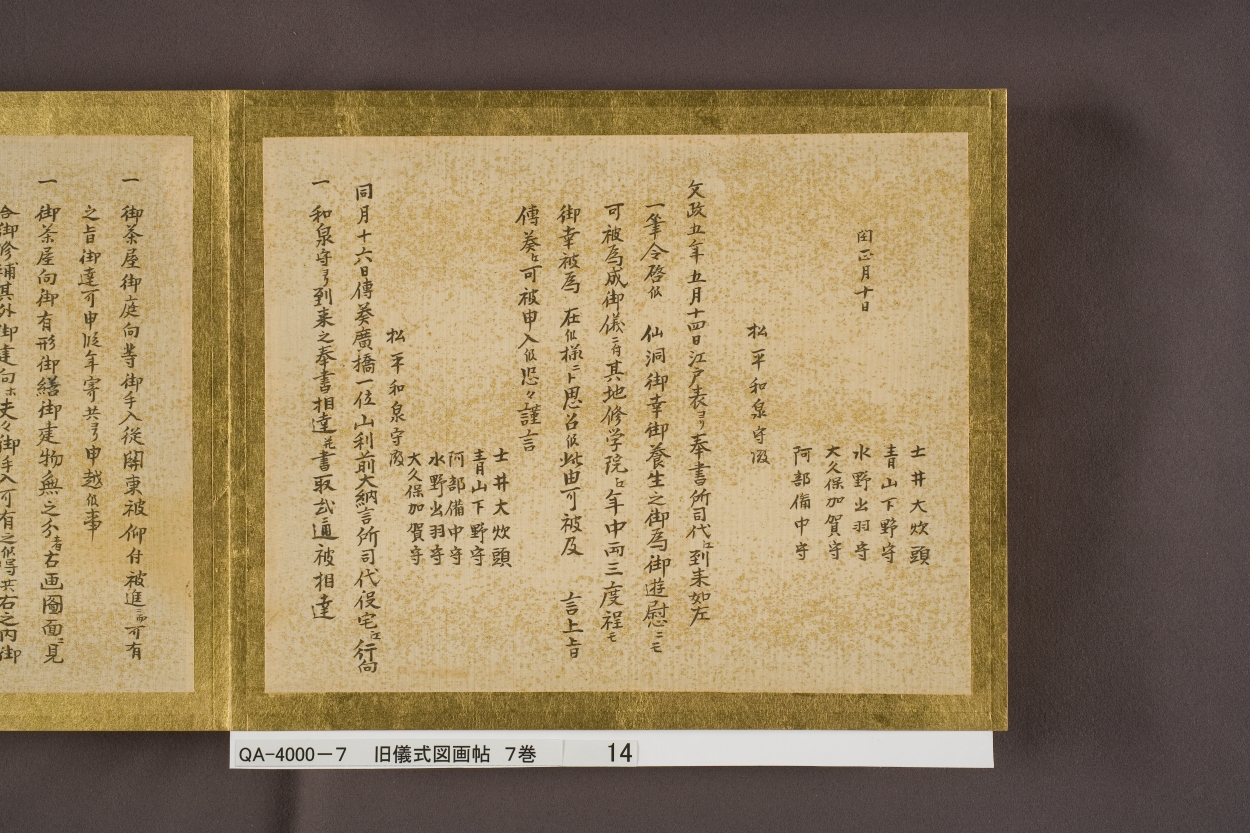 閏正月十日
土井大炊頭
青山下野守
水野出羽守
大久保加賀守
阿部備中守
松平和泉守殿
文政五年五月十四日江戸表ヨリ奉書所司代江到来如左
一筆令啓候 仙洞御幸御養生之御為御遊慰ニモ
可被為成御儀ニ付其地修学院江年中両三度程モ
御幸被為 在候様ニト思召候此由可被及 言上旨
傳奏江可被申入候恐々謹言
土井大炊頭
青山下野守
阿部備中守
水野出羽守
大久保加賀守
松平和泉守殿
同月十六日傳奏廣橋一位山科前大納言所司代役宅江行向
一 和泉守ヨリ到来之奉書相達 書取弐通被相達
一 御茶屋御庭向等御手入従関東被仰付被進 可有
之旨御達可申候年寄共ヨリ申越候事
一 御茶屋向御有形御繕御建物無之分者古画圖面ニ見
合御修補其外御建向ホ夫々御手入可有之候得共右之内御
QA-4000-7 旧儀式図画帖 7巻 14